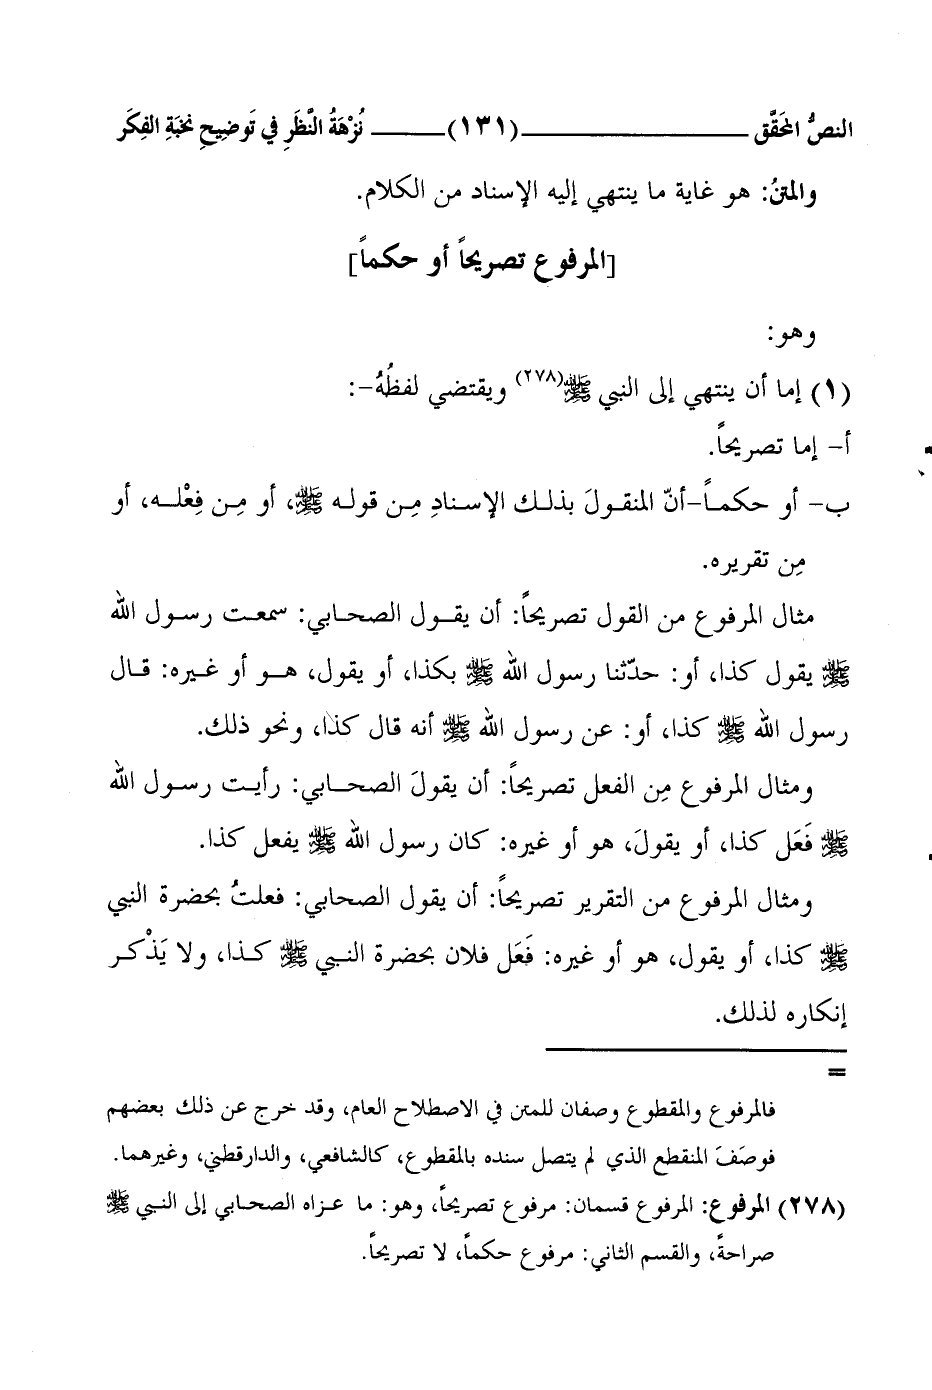 النصُّ المحَقَّق ــــــــــــــــــــ (١٣١) ـــــــــ نُزْهَةُ النَّظَرِ في تَوضِيحِ نخبَةِ الفِكَر
والمتنُ: هو غاية ما ينتهي إليه الإسناد من الكلام.
[المرفوع تصريحاً أو حكماً]
وهو:
(١) إما أن ينتهي إلى النبي ﷺ(٢٧٨) ويقتضي لفظُهُ-:
أ- إما تصريحاً.
ب- أو حكمـاً-أنّ المنقـولَ بذلـك الإسـنادِ مِـن قولـه ﷺ، أو مِـن فِعْلـه، أو
مِن تقريره.
مثال المرفوع من القول تصريحاً: أن يقـول الصحـابي: سمعـت رسـول الله
ﷺ يقول كذا، أو: حدّثنا رسول الله ﷺ بكذا، أو يقول، هـو أو غـيره: قـال
رسول الله ﷺ كذا، أو: عن رسول الله ﷺ أنه قال كذا، ونحو ذلك.
ومثال المرفوع مِن الفعل تصريحاً: أن يقولَ الصحـابي: رأيـت رسـول الله
ﷺ فَعَل كذا، أو يقولَ، هو أو غيره: كان رسول الله ﷺ يفعل كذا.
ومثال المرفوع من التقرير تصريحاً: أن يقول الصحابي: فعلتُ بحضرة النبي
ﷺ كذا، أو يقول، هو أو غيره: فَعَل فلان بحضرة النـبي ﷺ كـذا، ولا يَذْكـر
إنكاره لذلك.
=
فالمرفوع والمقطوع وصفان للمتن في الاصطلاح العام، وقد خرج عن ذلك بعضهم
فوصَفَ المنقطع الذي لم يتصل سنده بالمقطوع، كالشافعي، والدارقطني، وغيرهما.
(٢٧٨) المرفوع: المرفوع قسمان: مرفوع تصريحاً، وهو: ما عـزاه الصحـابي إلى النـبي ﷺ
صراحةً، والقسم الثاني: مرفوع حكماً، لا تصريحاً.